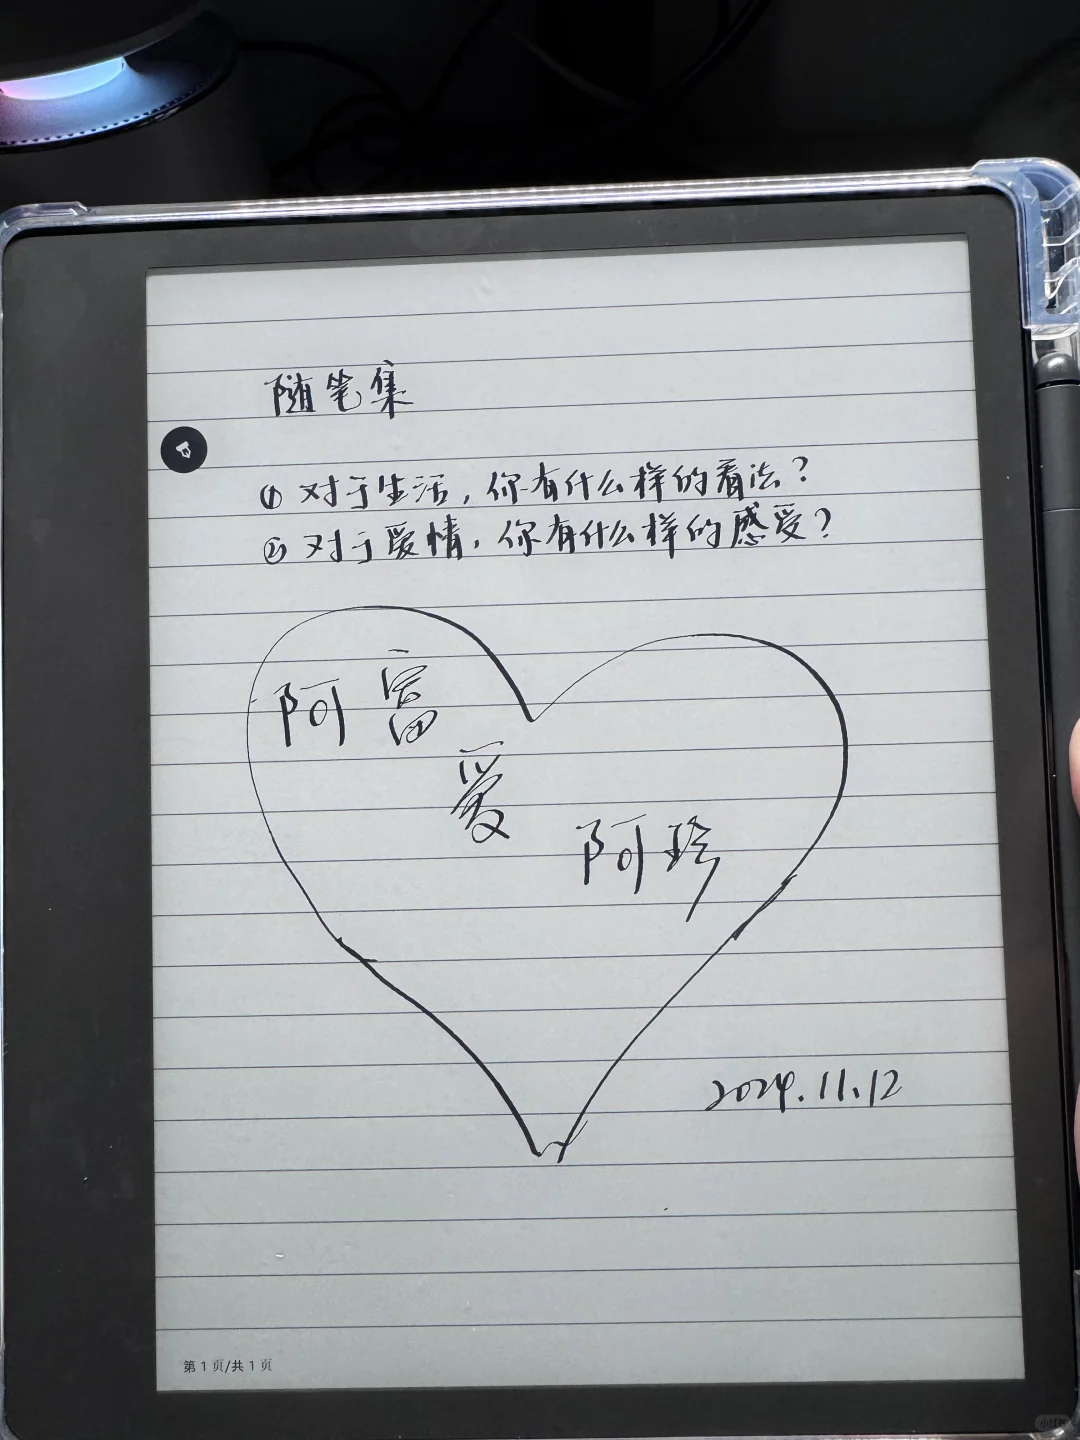 随笔集
① 对于生活，你有什么样的看法？
② 对于爱情，你有什么样的感受？
阿富
爱
阿珍
2024.11.12
第 1 页/共 1 页